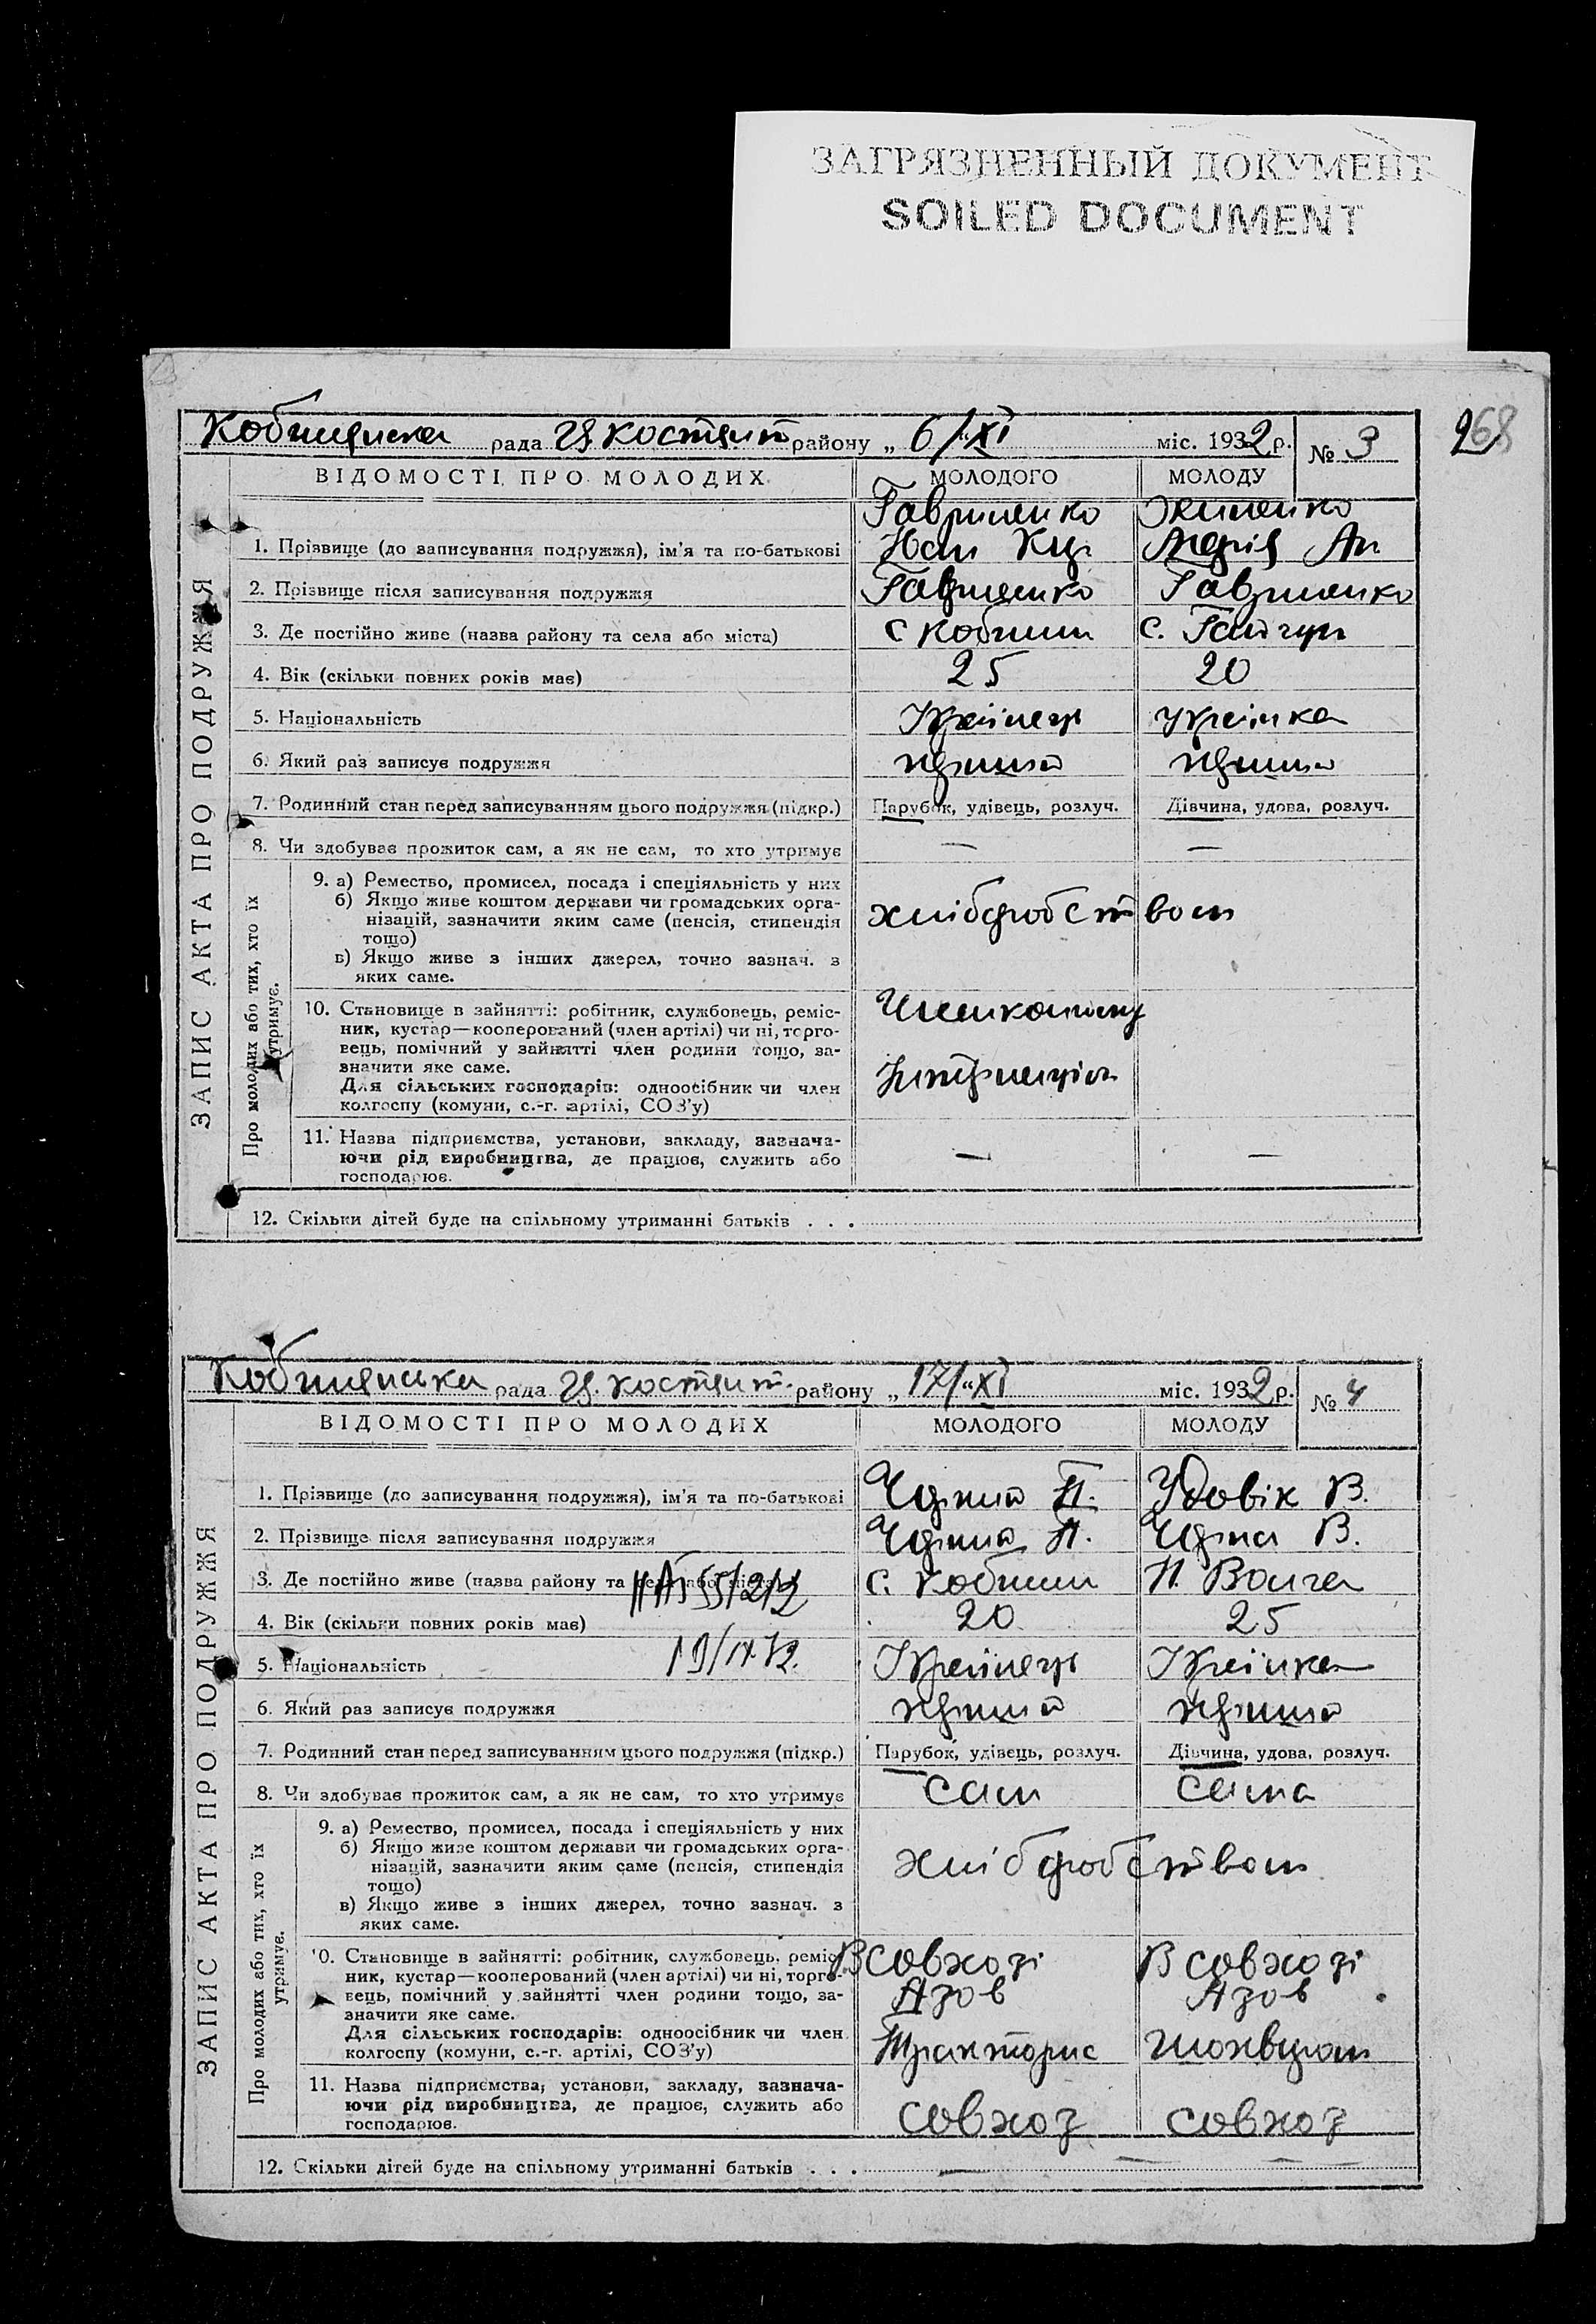 ЗАГРЯЗНЕННЫЙ ДОКУМЕНТ
SOILED DOCUMENT
268
рада району „6/“XI міс. 1932 р. № 3
ВІДОМОСТІ ПРО МОЛОДИХ МОЛОДОГО МОЛОДУ
Гавриленко
1. Прізвище (до записування подружжя), ім’я та по-батькові
2. Прізвище після записування подружжя Гавриленко Гавриленко
3. Де постійно живе (назва району та села або міста) с с. Гайчур
4. Вік (скільки повних років має) 25 20
5. Національність Українець українка
6. Який раз записує подружжя перший перший
7. Родинний стан перед записуванням цього подружжя (підкр.) Парубок, удівець, розлуч. Дівчина, удова, розлуч.
8. Чи здобуває прожиток сам, а як не сам, то хто утримує — —
9. а) Ремество, промисел, посада і спеціяльність у них
б) Якщо живе коштом держави чи громадських орга-
нізацій, зазначити яким саме (пенсія, стипендія хліборобством
тощо)
в) Якщо живе з інших джерел, точно зазнач. з
яких саме.
10. Становище в зайнятті: робітник, службовець, реміс-
ник, кустар—кооперований (член артілі) чи ні, торго-
вець, помічний у зайнятті член родини тощо, за-
значити яке саме.
Для сільських господарів: одноосібник чи член
колгоспу (комуни, с.-г. артілі, СОЗ’у)
11. Назва підприємства, установи, закладу, зазнача-
ючи рід виробництва, де працює, служить або — —
господарює.
12. Скільки дітей буде на спільному утриманні батьків . . .
ЗАПИС АКТА ПРО ПОДРУЖЖЯ
Про молодих або тих, хто їх
утримує.
рада району „17/“XI міс. 1932 р. № 4
ВІДОМОСТІ ПРО МОЛОДИХ МОЛОДОГО МОЛОДУ
1. Прізвище (до записування подружжя), ім’я та по-батькові Чорний П. Удовік В.
2. Прізвище після записування подружжя Чорний П. Чорна В.
3. Де постійно живе (назва району та села або міста) с.
4. Вік (скільки повних років має) 20 25
5. Національність Українець Українка
6. Який раз записує подружжя перший перший
7. Родинний стан перед записуванням цього подружжя (підкр.) Парубок, удівець, розлуч. Дівчина, удова, розлуч.
8. Чи здобуває прожиток сам, а як не сам, то хто утримує сам сама
9. а) Ремество, промисел, посада і спеціяльність у них
б) Якщо живе коштом держави чи громадських орга-
нізацій, зазначити яким саме (пенсія, стипендія хліборобством
тощо)
в) Якщо живе з інших джерел, точно зазнач. з
яких саме.
10. Становище в зайнятті: робітник, службовець, реміс- В совхозі В совхозі
ник, кустар—кооперований (член артілі) чи ні, торго-
вець, помічний у зайнятті член родини тощо, за- Азов Азов
значити яке саме.
Для сільських господарів: одноосібник чи член
колгоспу (комуни, с.-г. артілі, СОЗ’у) Тракторис
11. Назва підприємства, установи, закладу, зазнача-
ючи рід виробництва, де працює, служить або совхоз совхоз
господарює.
12. Скільки дітей буде на спільному утриманні батьків . . .
ЗАПИС АКТА ПРО ПОДРУЖЖЯ
Про молодих або тих, хто їх
утримує.